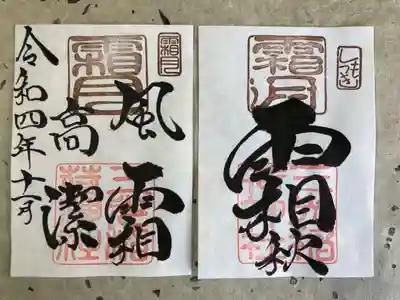 霜月
霜月
風霜
高潔
令和四年十一月
霜月
しもつき
霜秋